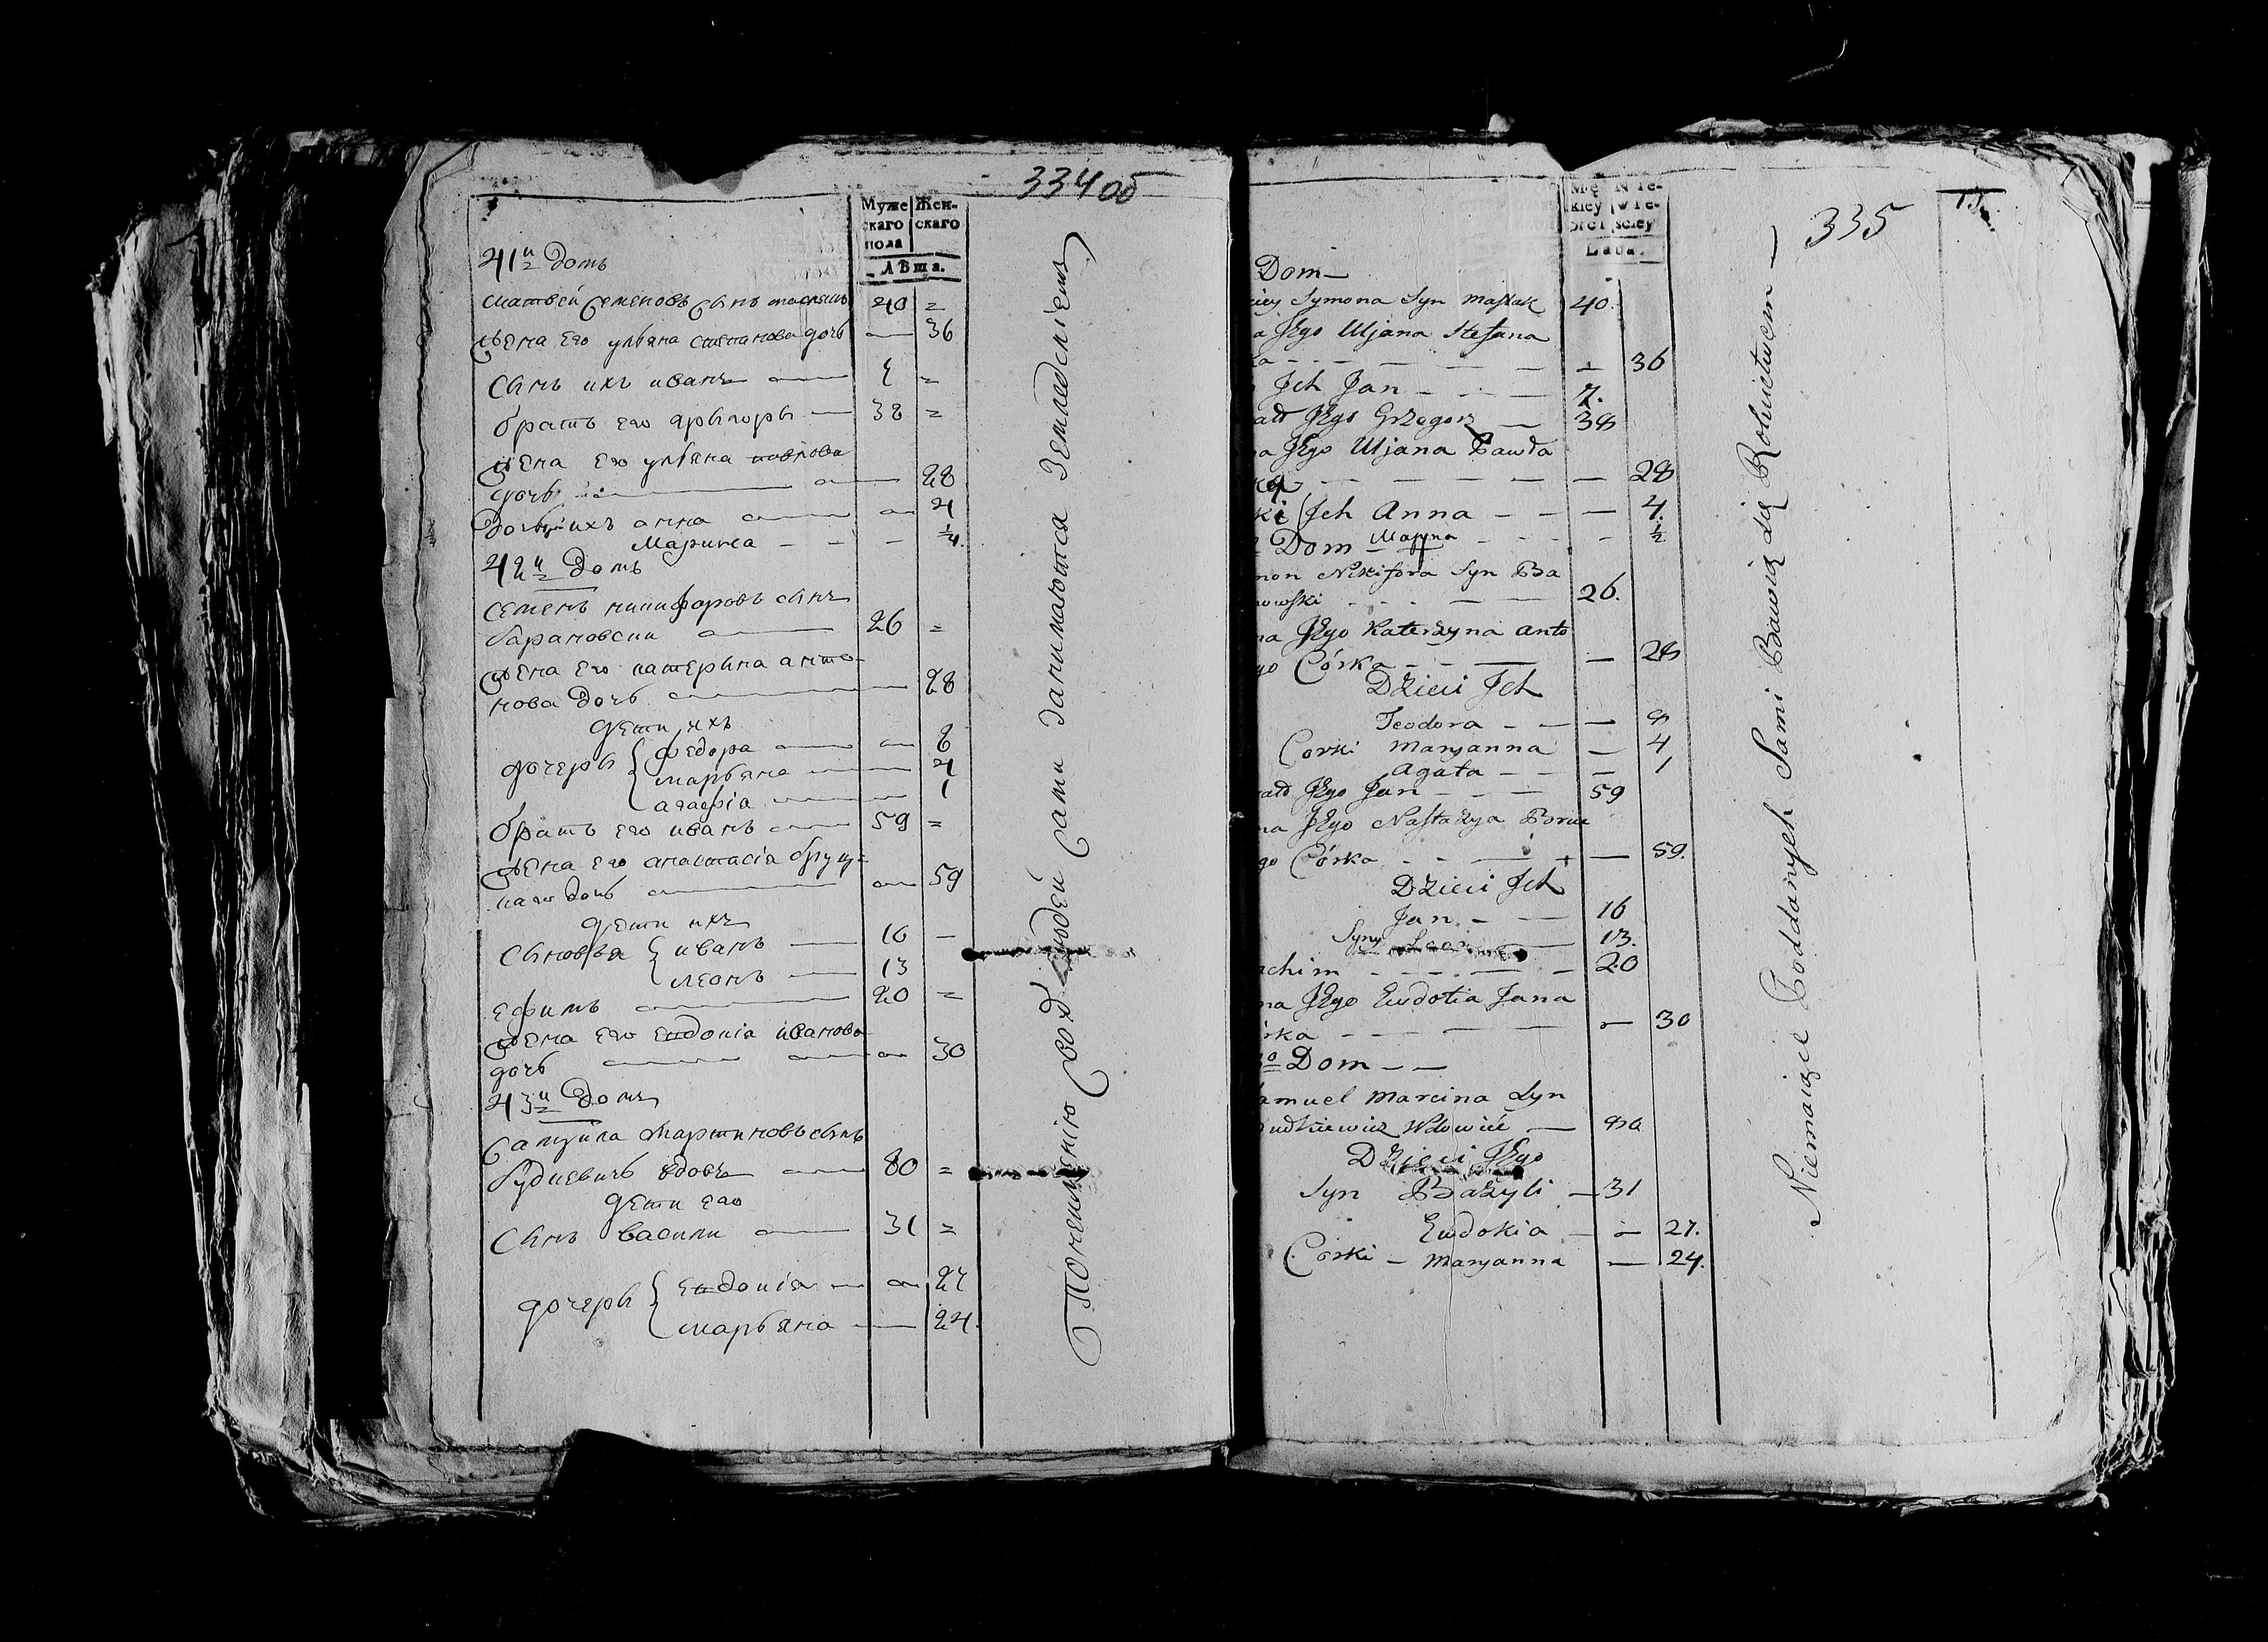 334 об
Муже Жен-
скаго скаго
пола
Лѣта.
41й домъ
Матвей Семеновъ сынъ 40 =
жена его ульяна степанова дочь — 36
сынъ ихъ иванъ — 7 =
братъ его грыгоры — 38 =
жена его ульяна павлова
дочь — — 28
дочьри ихъ анна — — 4
Марина - - -
42й домъ
семенъ никифаровъ сынъ
барановски — 26 =
жена его катерына анто-
нова дочь — — 28
дети ихъ
дочеры { федора — — 8
марьяна — — 4
агафіа — — 1
братъ его иванъ — 59 =
жена его анастасіа
каго дочь — — 59
дети ихъ
сыновья { иванъ — 16 —
леонъ — 13
ефимъ — 20 =
жена его евдокіа иванова
дочь — — 30
43й домъ
Самуила Мартиновъ сынъ
будкевичъ вдовъ — 80 =
дети его
сынъ васили — 31 =
дочеры { евдокіа — — 27
марьяна — — 24.
Понеимѣнію свод людей сами занимаются земледѣліемъ
335
Mię Nie-
skiey wie-
płci sciey
Lata.
Dom —
iey Symona Syn Maslak 40.
a Jego Uljana Stefana
ka - - - — — — 36
Ich Jan - - — 7.
rat Jego Grzegorz — 38
na Jego Uljana Pawła
— — — — — 28
ki Ich Anna - - - — 4.
Dom Maryna - - - - ½
mon Nikifora Syn Ba
nowski - - - — — 26.
na Jego Katerzyna Anto
go Córka - - — — 28
Dzieci Ich
Teodora - - — — 8
Corki Maryanna — 4
Agata - - - — 1
rat Jego Jan - - - — 59
na Jego Nastazya
go Córka - - - — — 59.
Dzieci Ich
Jan - - — 16
Syny Leon — 13.
achim - - - - — - 20
na Jego Ewdokia Jana
órka - - - - — — 30
Dom - —
amuel Marcina Syn
udkiewicz Wdowiec — 80
Dzieci Jego
Syn Bazyli — 31
Ewdokia - - 27.
Córki - Maryanna — 24.
Niemaiące Poddanych Sami Bawią się Rolnictwem —